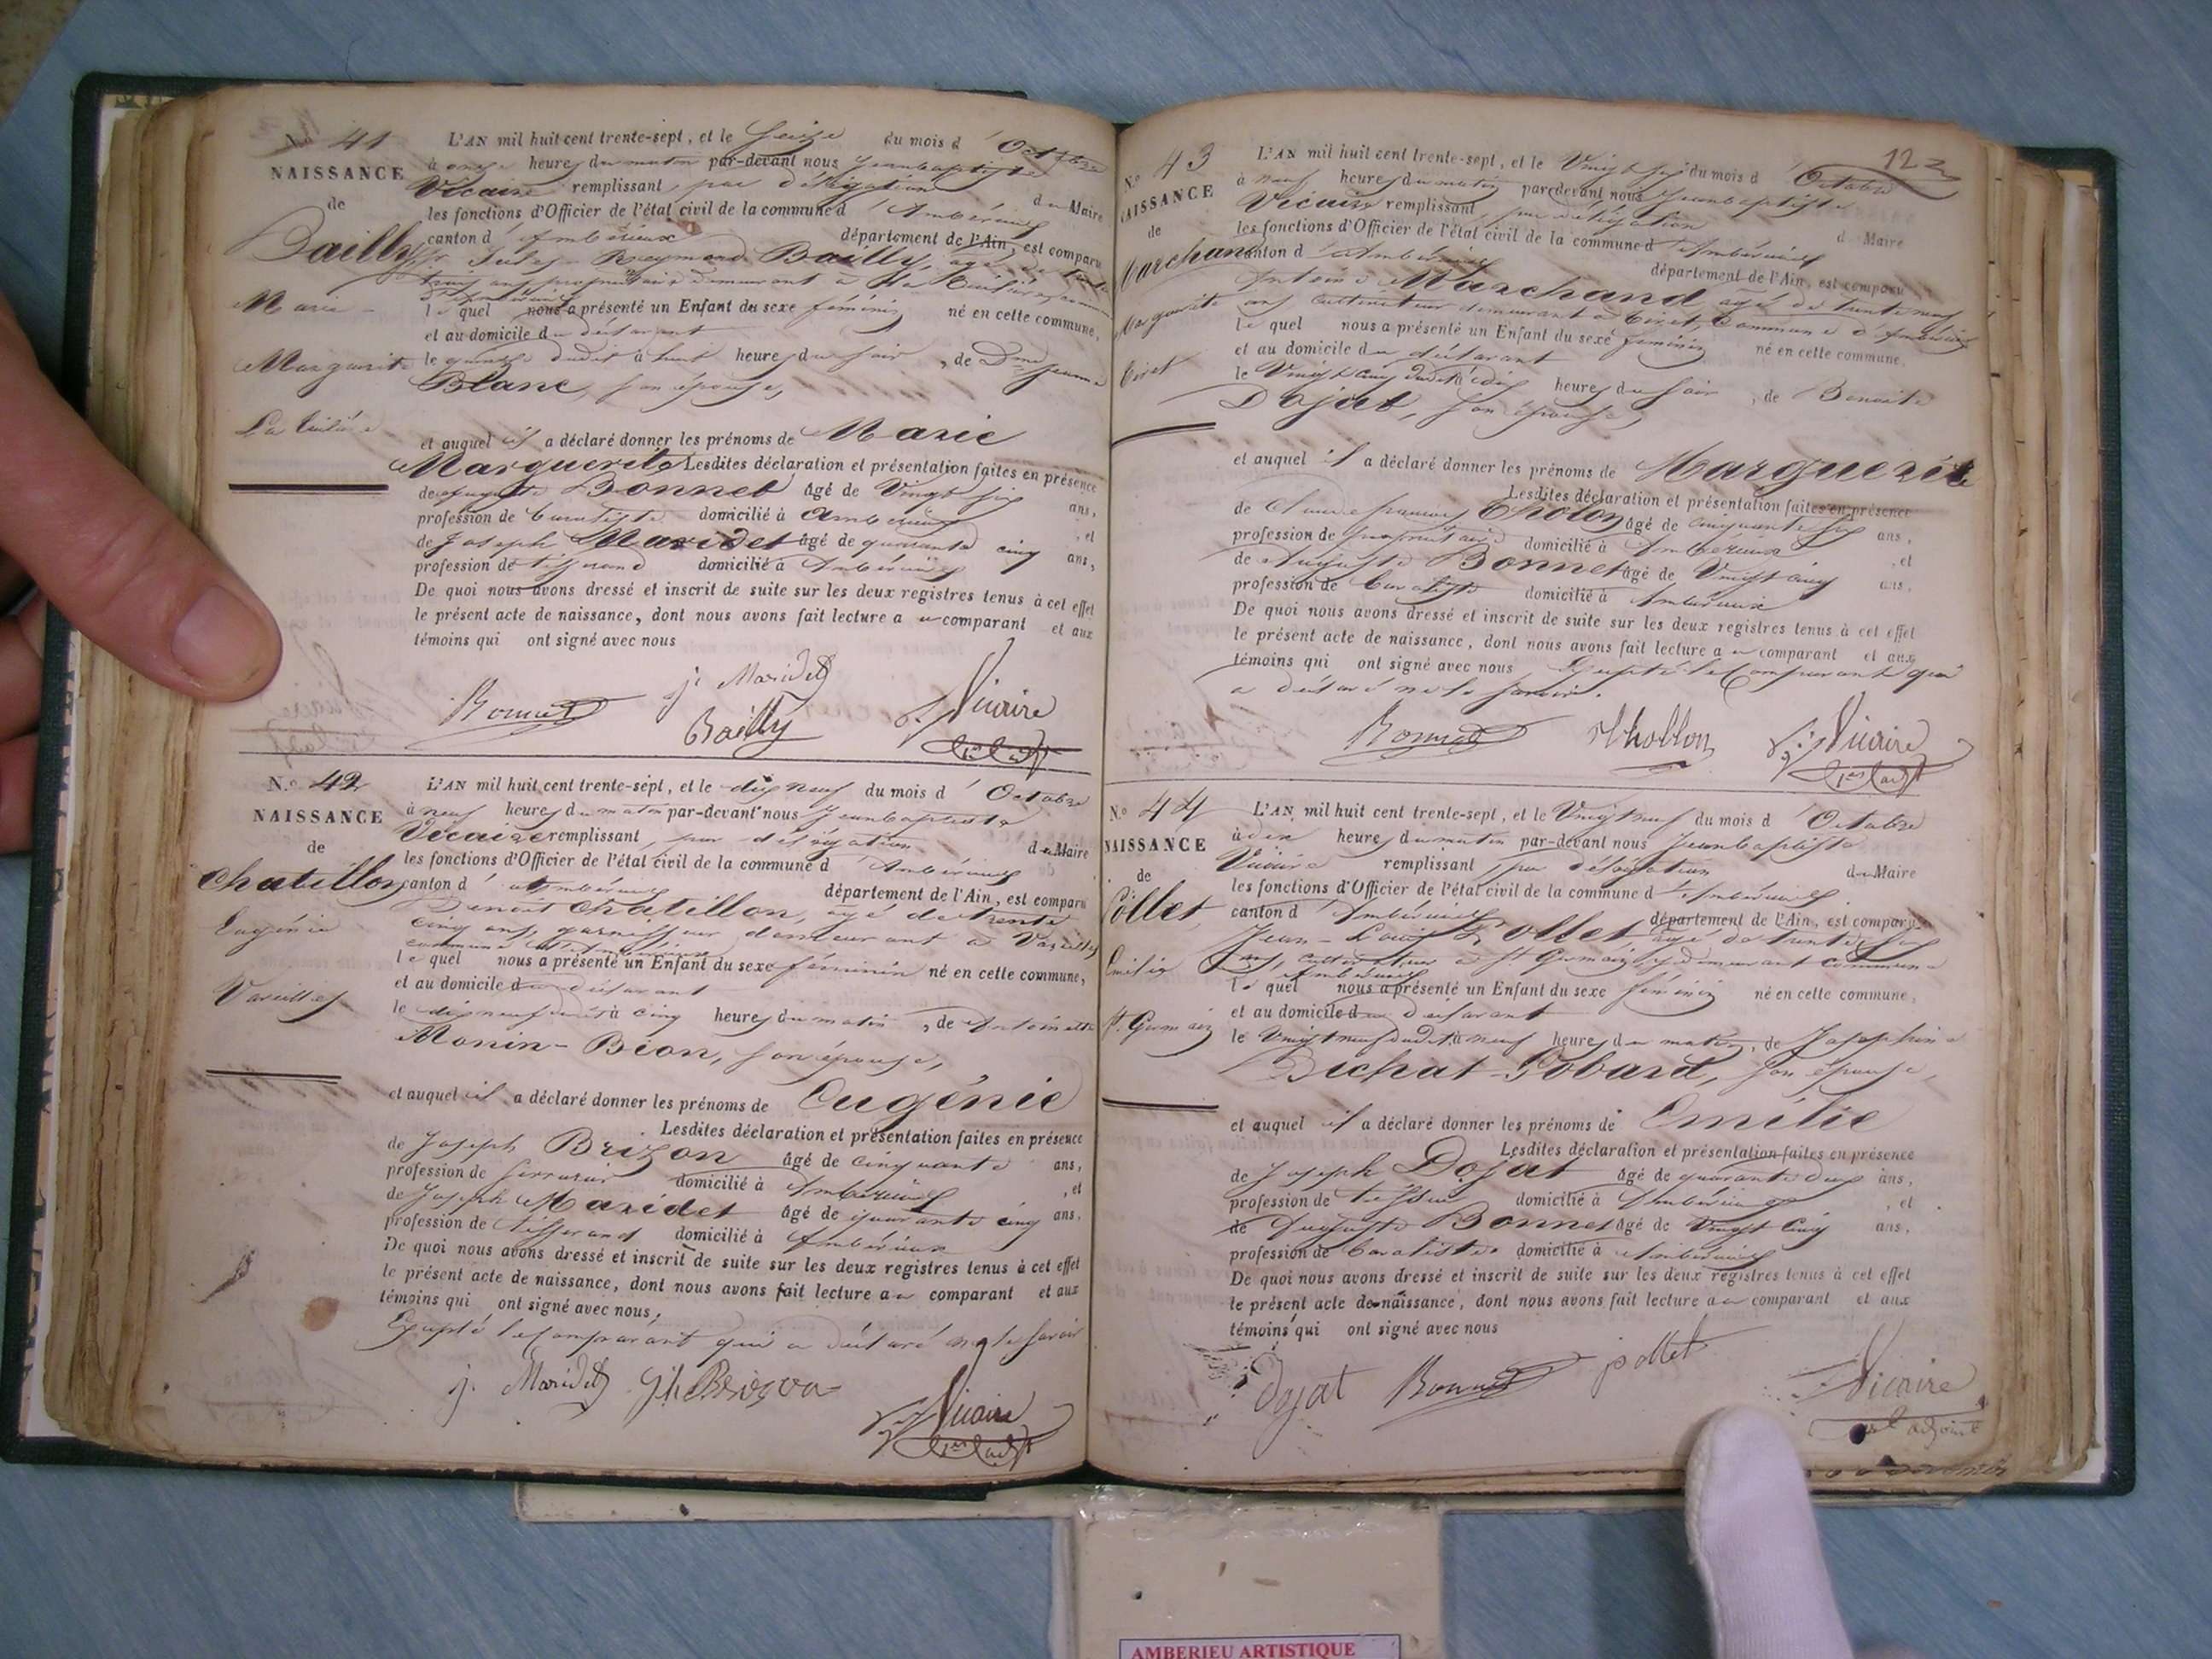 N.o 41
NAISSANCE
de
Bailly
Marie
Marguerite
La Tuilière
L'AN mil huit cent trente-sept, et le Seize du mois d' Octobre
à onze heures du matin par-devant nous Jean baptiste
Vicaire remplissant par délégation du Maire
les fonctions d'Officier de l'état civil de la commune d' Ambérieux
canton d' Ambérieux département de l'Ain, est comparu
Sr Jules-Reymond Bailly, agé de trente
trois ans propriétaire demeurant à La Tuilière commune
d'Ambérieux
le quel nous a présenté un Enfant du sexe féminin né en cette commune,
et au domicile du déclarant
le quinze dudit à huit heures du soir, de Dme Jeanne
Blanc, son épouse,
et auquel il a déclaré donner les prénoms de Marie
Marguerite Lesdites déclaration et présentation faites en présence
de Auguste Bonnet âgé de Vingt six ans,
profession de Buraliste domicilié à Ambérieux, et
de Joseph Maridet âgé de quarante cinq ans,
profession de tisserand domicilié à Ambérieux
De quoi nous avons dressé et inscrit de suite sur les deux registres tenus à cet effet
le présent acte de naissance, dont nous avons fait lecture au comparant et aux
témoins qui ont signé avec nous
Bonnet j. Maridet
Bailly Vicaire
N.o 42
NAISSANCE
de
Chatillon
Eugénie
Vareilles
L'AN mil huit cent trente-sept, et le dix neuf du mois d' Octobre
à neuf heures du matin par-devant nous Jean baptiste
Vicaire remplissant, par délégation du Maire
les fonctions d'Officier de l'état civil de la commune d' Ambérieux
canton d' Ambérieux département de l'Ain, est comparu
Benoit Chatillon, agé de trente
cinq ans, demeurant a Vareilles
commune d'Ambérieux
le quel nous a présenté un Enfant du sexe féminin né en cette commune,
et au domicile du déclarant
le dix neuf dudit à cinq heures du matin, de Antoinette
Monin-Bion, son épouse,
et auquel il a déclaré donner les prénoms de Eugénie
Lesdites déclaration et présentation faites en présence
de Joseph Brizon âgé de cinquante ans,
profession de Serrurier domicilié à Ambérieux, et
de Joseph Maridet âgé de quarante cinq ans,
profession de tisserand domicilié à Ambérieux
De quoi nous avons dressé et inscrit de suite sur les deux registres tenus à cet effet
le présent acte de naissance, dont nous avons fait lecture au comparant et aux
témoins qui ont signé avec nous,
Excepté le comparant qui a déclaré ne le savoir
j. Maridet Brizon
Vicaire
122
N.o 43
NAISSANCE
de
Marchand
Marguerite
Tiret
L'AN mil huit cent trente-sept, et le Vingt six du mois d' Octobre
à neuf heures du matin par-devant nous Jean baptiste
Vicaire remplissant, par délégation d Maire
les fonctions d'Officier de l'état civil de la commune d' Ambérieux
canton d' Ambérieux département de l'Ain, est comparu
Antoine Marchand agé de trente neuf
ans cultivateur demeurant à Tiret, Commune d'Ambérieux
le quel nous a présenté un Enfant du sexe féminin né en cette commune,
et au domicile du déclarant
le Vingt cinq dudit à dix heures du soir, de Benoite
Dojat, son épouse,
et auquel il a déclaré donner les prénoms de Marguerite
Lesdites déclaration et présentation faites en présence
de Claude françois Cholon âgé de cinquante six ans,
profession de propriétaire domicilié à Ambérieux, et
de Auguste Bonnet âgé de Vingt cinq ans,
profession de Buraliste domicilié à Ambérieux
De quoi nous avons dressé et inscrit de suite sur les deux registres tenus à cet effet
le présent acte de naissance, dont nous avons fait lecture au comparant et aux
témoins qui ont signé avec nous Excepté le Comparant qui
a déclaré ne le savoir.
Bonnet Chollon Vicaire
N.o 44
NAISSANCE
de
Pollet
Emilie
St. Germain
L'AN mil huit cent trente-sept, et le Vingt neuf du mois d' Octobre
à dix heures du matin par-devant nous Jean baptiste
Vicaire remplissant, par délégation du Maire
les fonctions d'Officier de l'état civil de la commune d' Ambérieux
canton d' Ambérieux département de l'Ain, est comparu
Jean-Louis Pollet agé de trente six
ans, cultivateur a St Germain, y demeurant commune
d'Ambérieux
le quel nous a présenté un Enfant du sexe féminin né en cette commune,
et au domicile du déclarant
le Vingt neuf dudit, à neuf heures du matin, de Josephine
Bichat-Gobard, son épouse,
et auquel il a déclaré donner les prénoms de Emilie
Lesdites déclaration et présentation faites en présence
de Joseph Dojat âgé de quarante deux ans,
profession de domicilié à Ambérieux, et
de Auguste Bonnet âgé de Vingt cinq ans,
profession de Buraliste domicilié à Ambérieux
De quoi nous avons dressé et inscrit de suite sur les deux registres tenus à cet effet
le présent acte de naissance, dont nous avons fait lecture au comparant et aux
témoins qui ont signé avec nous
Dojat Bonnet pollet Vicaire
adjoint
AMBERIEU ARTISTIQUE